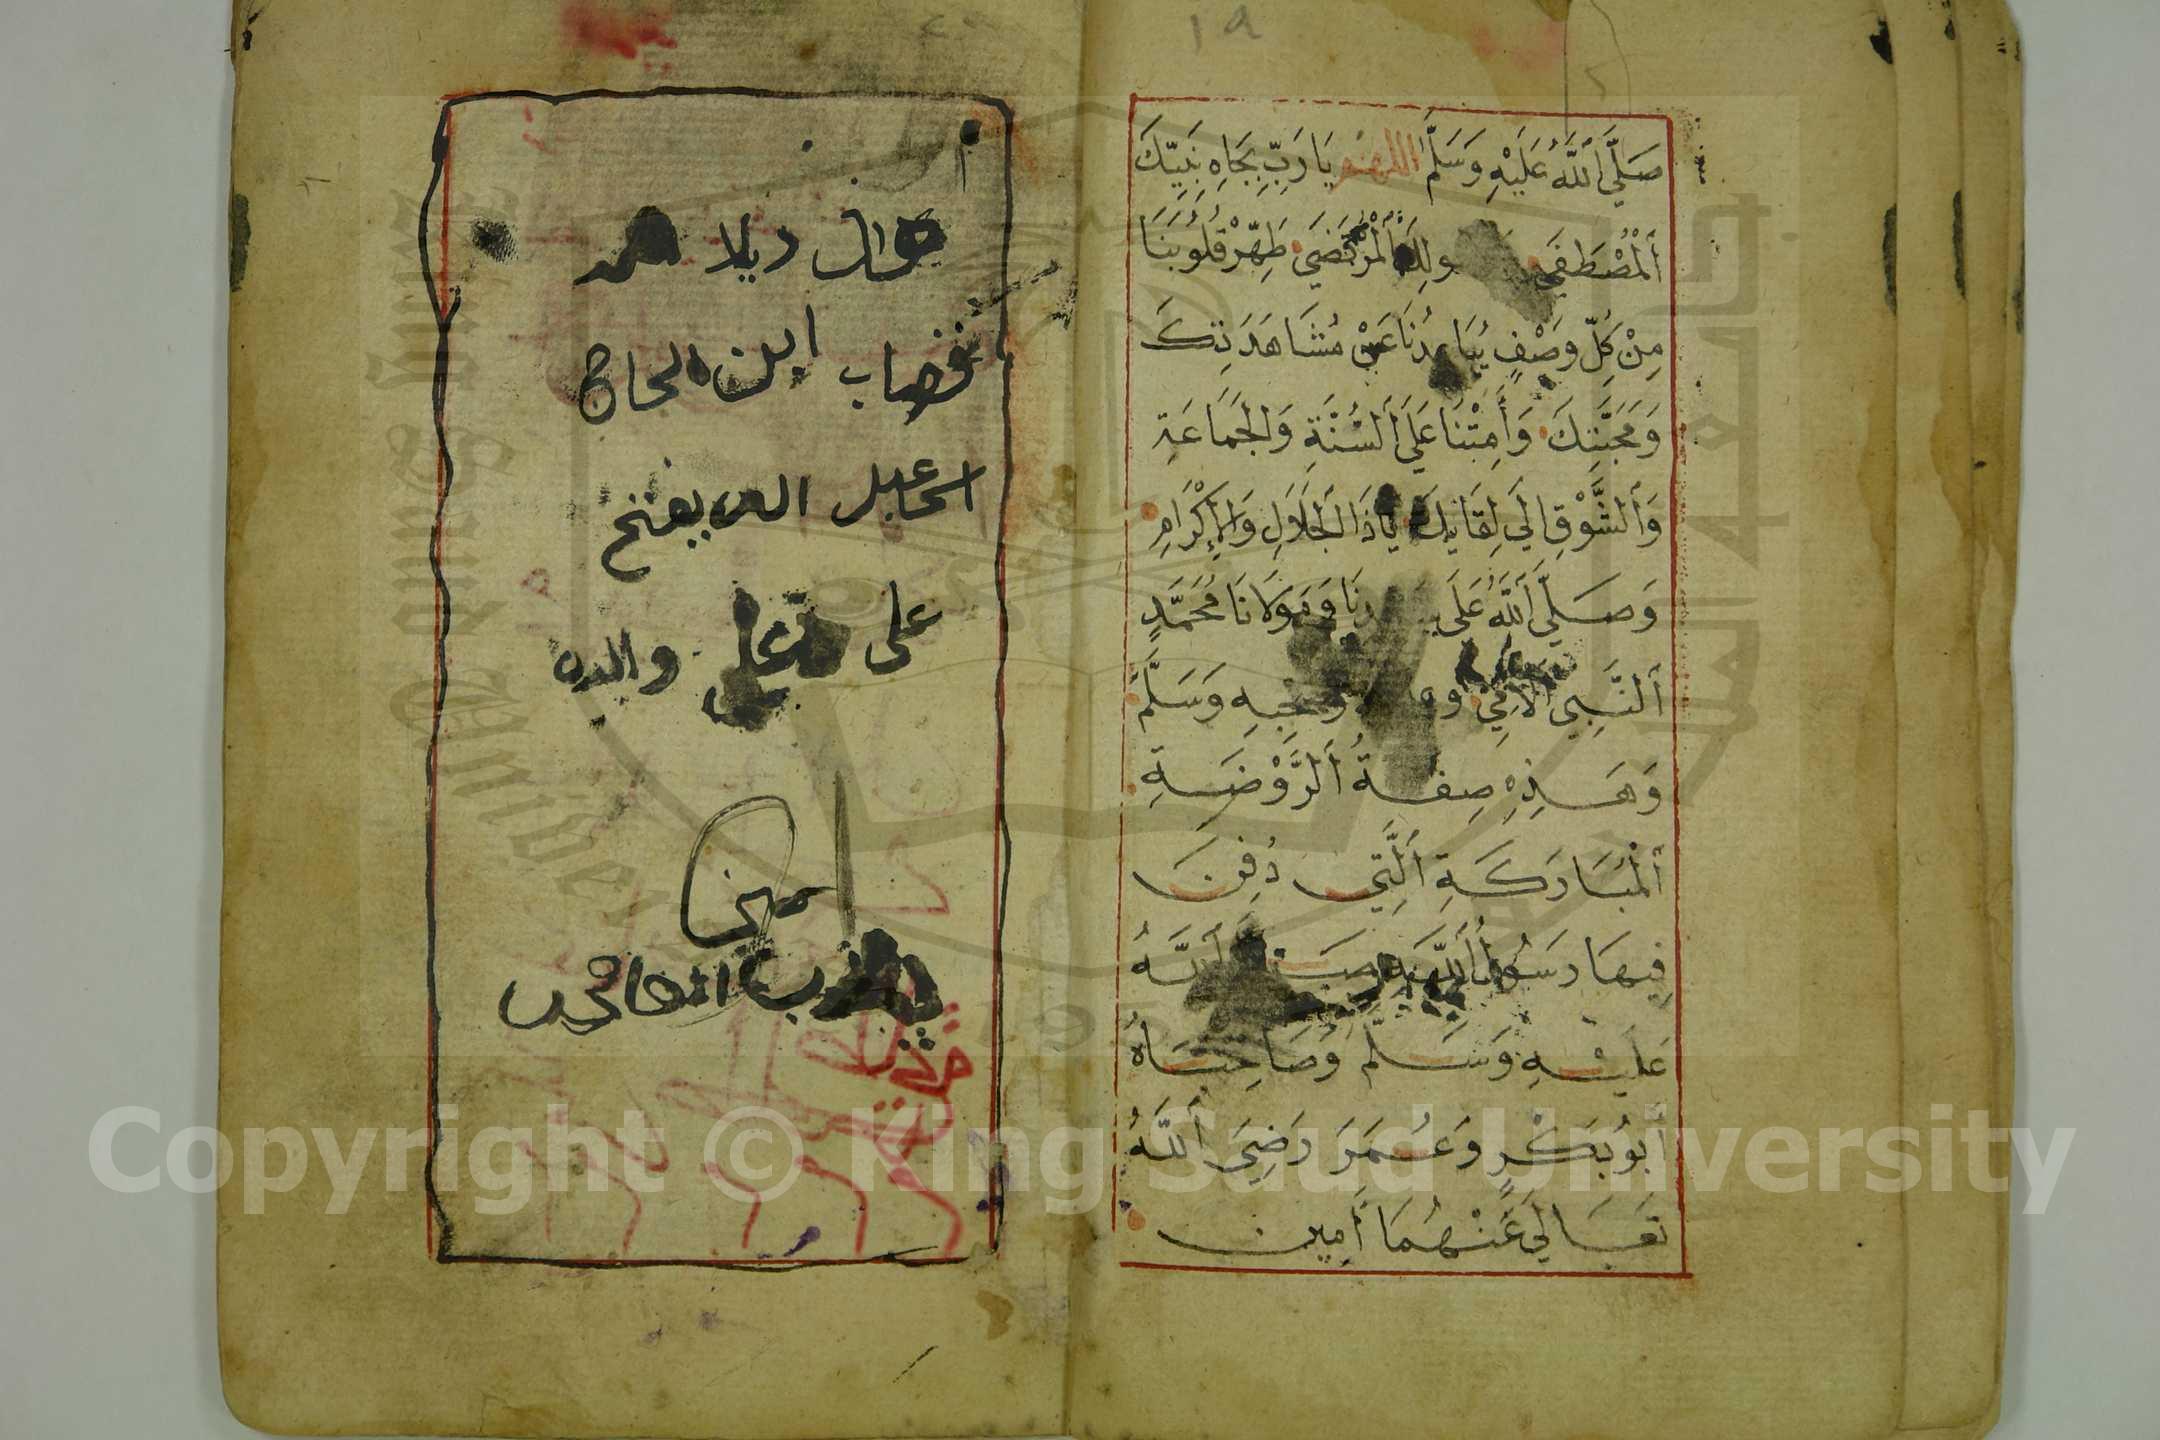 ١٩
صَلَّى اَللَّهُ عَلَيْهِ وَسَلَّمَ اللهم يَا رَبِّ بِجَاهِ نَبِيِّكَ
اَلْمُصْطَفَى اَلْمُرْتَضَى طَهِّرْ قُلُوبَنَا
مِنْ كُلِّ وَصْفٍ يُبَاعِدُنَا عَنْ مُشَاهَدَتِكَ
وَمَحَبَّتِكَ وَأَمِتْنَا عَلَى اَلسُّنَّةِ وَالْجَمَاعَةِ
وَاَلشَّوْقِ إِلَى لِقَائِكَ يَا ذَا الْجَلَالِ وَالْإِكْرَامِ
وَصَلَّى اَللَّهُ عَلَى سَيِّدِنَا وَمَوْلَانَا مُحَمَّدٍ
اَلنَّبِيِّ الْأُمِّيِّ وَصَحْبِهِ وَسَلَّمَ
وَهَذِهِ صِفَةُ اَلرَّوْضَةِ
اَلْمُبَارَكَةِ اَلَّتِي دُفِنَ
فِيهَا رَسُولُ اَللَّهِ صَلَّى اَللَّهُ
عَلَيْهِ وَسَلَّمَ وَصَاحِبَاهُ
أَبُو بَكْرٍ وَعُمَرَ رَضِيَ اَللَّهُ
تَعَالَى عَنْهُمَا أَمِين
ابن الحاج
اسماعيل يفتح
على والديه
امين
Copyright © King Saud University